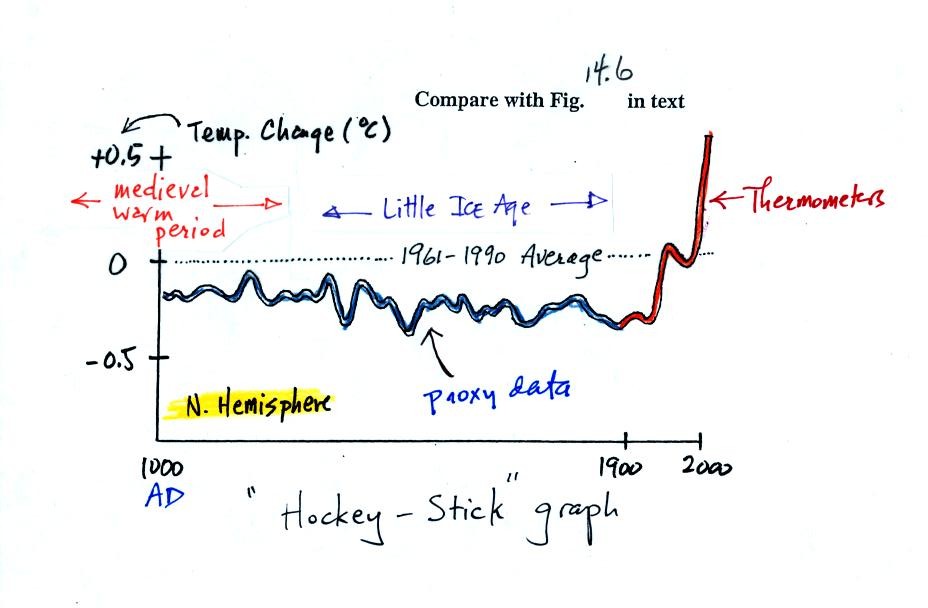 14.6
Compare with Fig. in text
Temp. Change (°C)
+0.5
medievel
warm
period
Little Ice Age
Thermometers
0
1961-1990 Average
-0.5
proxy data
N. Hemisphere
1000
AD
1900
2000
"Hockey-Stick" graph